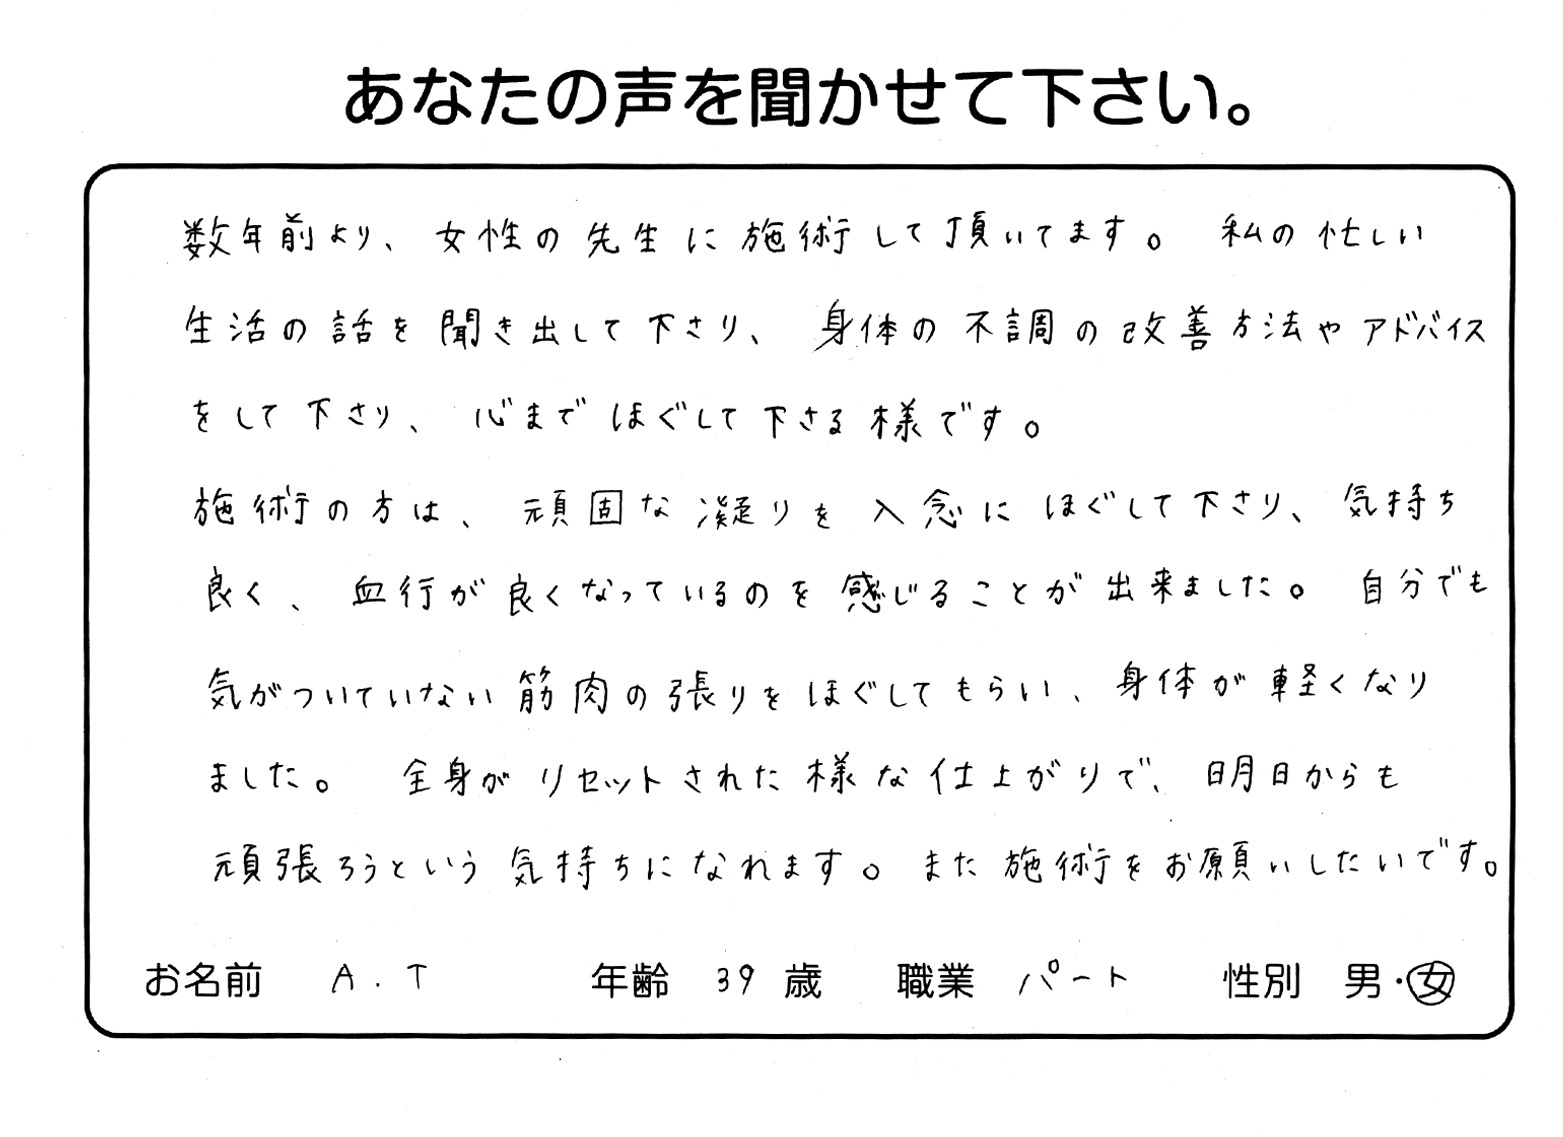 あなたの声を聞かせて下さい。
数年前より、女性の先生に施術して頂いてます。 私の忙しい
生活の話を聞き出して下さり、 身体の不調の改善方法やアドバイス
をして下さり、心までほぐして下さる様です。
施術の方は、頑固な凝りを入念にほぐして下さり、気持ち
良く、血行が良くなっているのを感じることが出来ました。 自分でも
気がついていない筋肉の張りをほぐしてもらい、身体が軽くなり
ました。 全身がリセットされた様な仕上がりで、明日からも
頑張ろうという気持ちになれます。また施術をお願いしたいです。
お名前 A.T 年齢 39 歳 職業 パート 性別 男・女